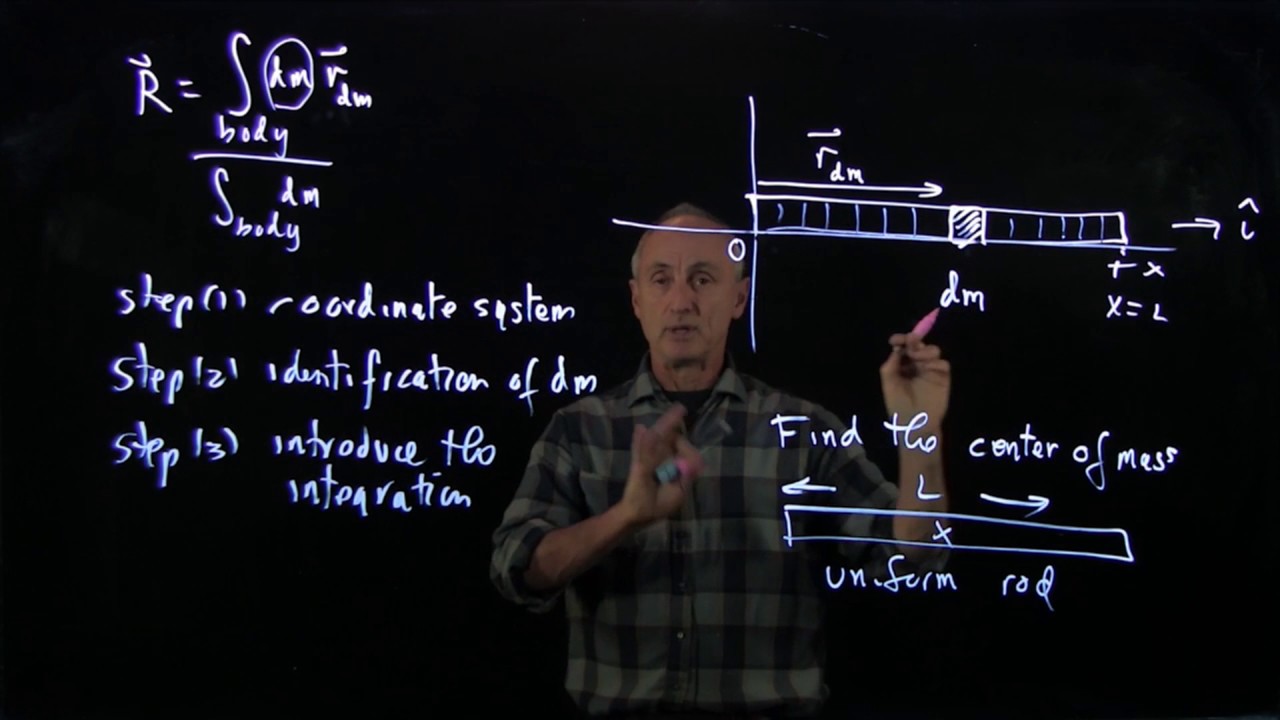 R⃗ = ∫body dm r⃗dm
∫body dm
step(1) coordinate system
step(2) identification of dm
step(3) introduce the
integration
r⃗dm
î
0
+ x
dm
x = L
Find the center of mass
L
x
uniform rod